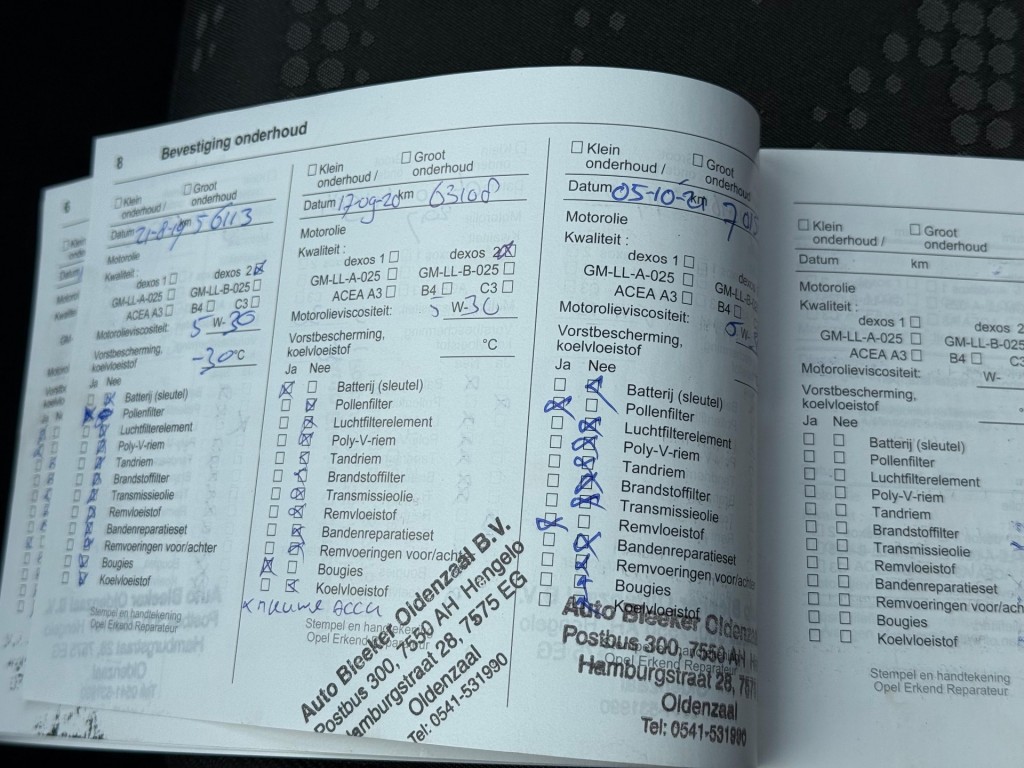 8 Bevestiging onderhoud
Klein onderhoud /
Groot onderhoud
Datum 21-8-19 km 56113
Motorolie
Kwaliteit :
dexos 1 dexos 2
GM-LL-A-025 GM-LL-B-025
ACEA A3 B4 C3
Motorolieviscositeit: 5 W-30
Vorstbescherming,
koelvloeistof -30 °C
Ja Nee
Batterij (sleutel)
Pollenfilter
Luchtfilterelement
Poly-V-riem
Tandriem
Brandstoffilter
Transmissieolie
Remvloeistof
Bandenreparatieset
Remvoeringen voor/achter
Bougies
Koelvloeistof
Stempel en handtekening
Opel Erkend Reparateur
Klein
onderhoud /
Groot
onderhoud
Datum 17-09-20 km 63108
Motorolie
Kwaliteit :
dexos 1 dexos 2
GM-LL-A-025 GM-LL-B-025
ACEA A3 B4 C3
Motorolieviscositeit: 5 W-30
Vorstbescherming,
koelvloeistof °C
Ja Nee
Batterij (sleutel)
Pollenfilter
Luchtfilterelement
Poly-V-riem
Tandriem
Brandstoffilter
Transmissieolie
Remvloeistof
Bandenreparatieset
Remvoeringen voor/achter
Bougies
Koelvloeistof
x nieuwe accu
Stempel en handtekening
Opel Erkend Reparateur
Auto Bleeker Oldenzaal B.V.
Postbus 300, 7550 AH Hengelo
Hamburgstraat 28, 7575 EG
Oldenzaal
Tel: 0541-531990
Klein
onderhoud /
Groot
onderhoud
Datum 05-10-21 km 7015
Motorolie
Kwaliteit :
dexos 1
GM-LL-A-025 GM-LL-B
ACEA A3 B4
Motorolieviscositeit: 5 W-
Vorstbescherming,
koelvloeistof
Ja Nee
Batterij (sleutel)
Pollenfilter
Luchtfilterelement
Poly-V-riem
Tandriem
Brandstoffilter
Transmissieolie
Remvloeistof
Bandenreparatieset
Remvoeringen voor/achte
Bougies
Koelvloeistof
Opel Erkend Reparateur
Auto Bleeker Oldenza
Postbus 300, 7550 AH H
Hamburgstraat 28, 757
Oldenzaal
Tel: 0541-531990
Klein
onderhoud /
Groot
onderhoud
Datum km
Motorolie
Kwaliteit :
dexos 1 dexos 2
GM-LL-A-025 GM-LL-B-025
ACEA A3 B4 C3
Motorolieviscositeit: W-
Vorstbescherming,
koelvloeistof
Ja Nee
Batterij (sleutel)
Pollenfilter
Luchtfilterelement
Poly-V-riem
Tandriem
Brandstoffilter
Transmissieolie
Remvloeistof
Bandenreparatieset
Remvoeringen voor/ach
Bougies
Koelvloeistof
Stempel en handtekening
Opel Erkend Reparateur
6